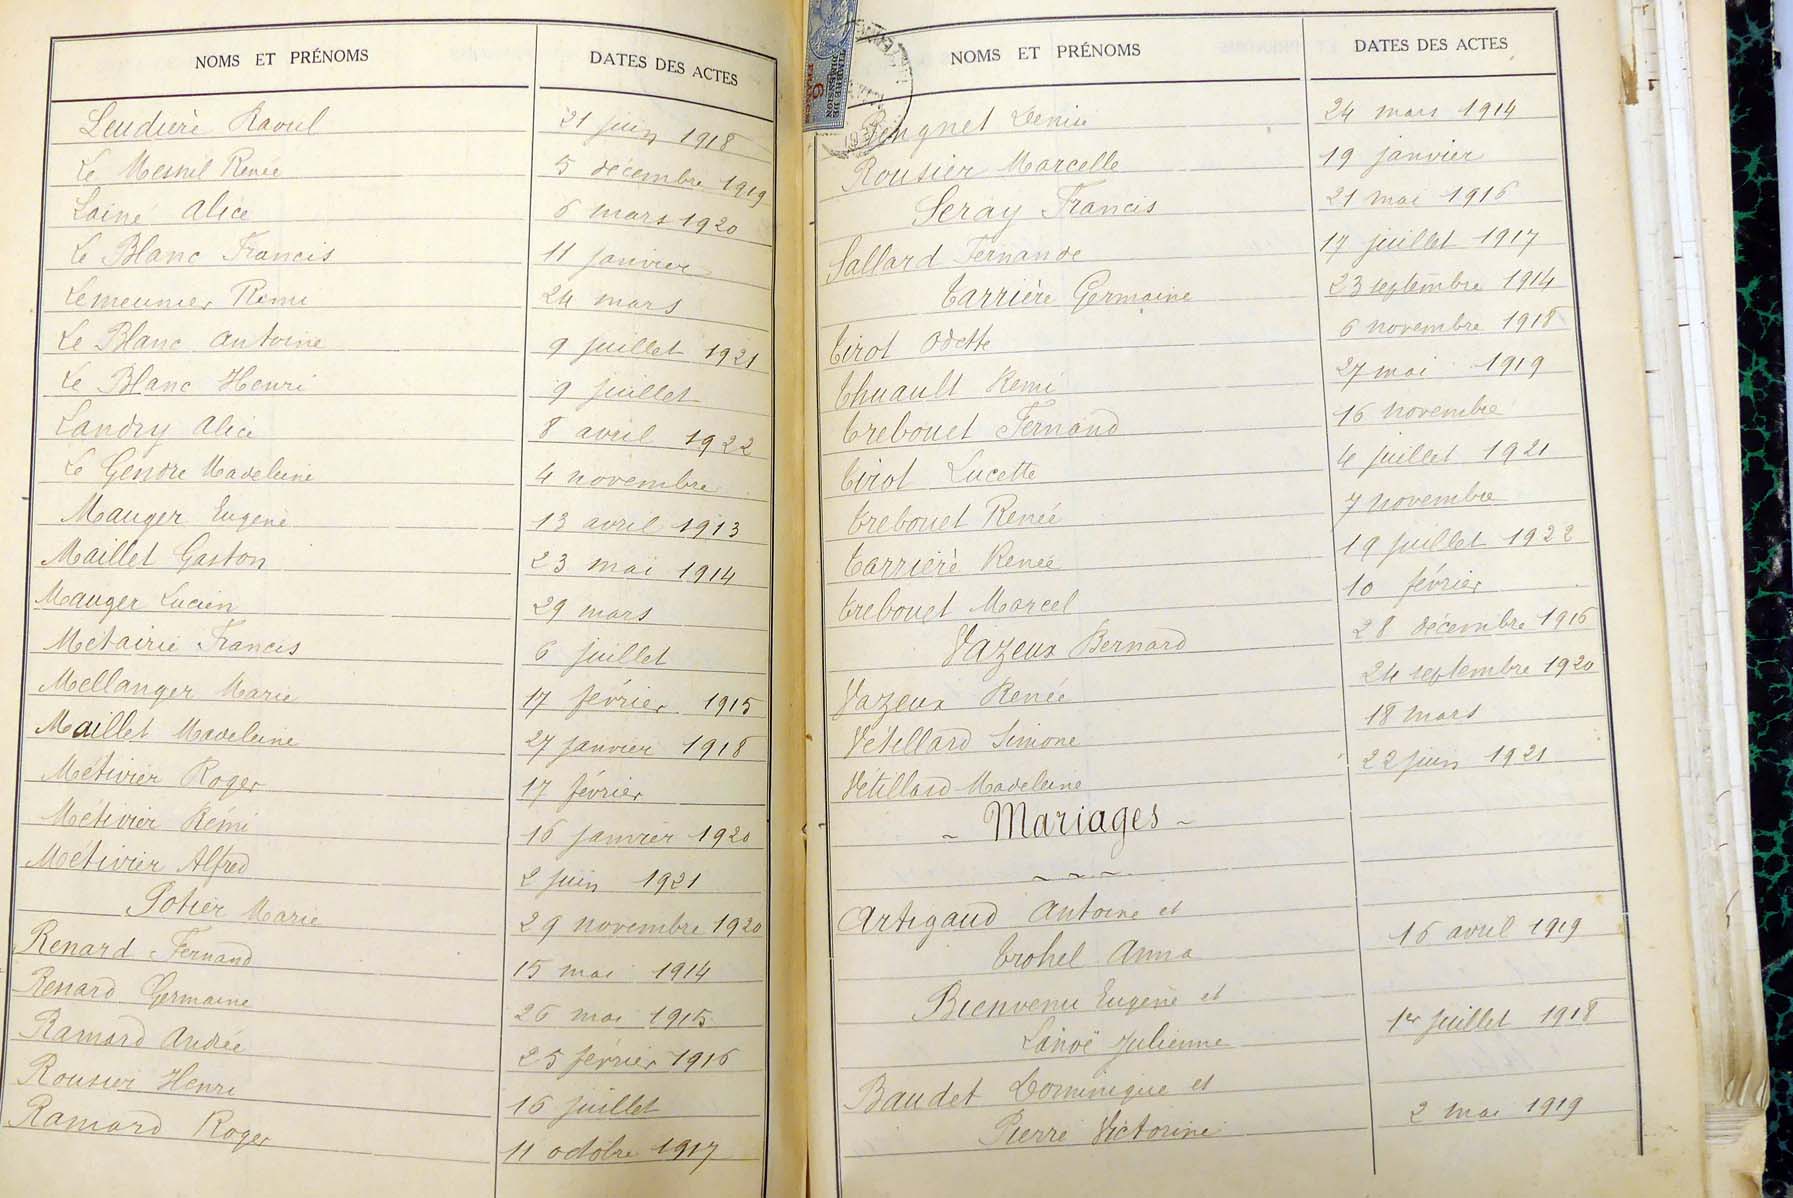 NOMS ET PRÉNOMS
DATES DES ACTES
Leudière Raoul 21 juin 1918
Le Mesnil Renée 5 décembre 1919
Lainé Alice 6 mars 1920
Le Blanc Francis 11 janvier
Lemeunier Rémi 24 mars
Le Blanc Antoine 9 juillet 1921
Le Blanc Henri 9 juillet
Landry Alice 8 avril 1922
Le Gendre Madeleine 4 novembre
Mauger Eugène 13 avril 1913
Maillet Gaston 23 mai 1914
Mauger Lucien 29 mars
Metairie Francis 6 juillet
Mellanger Marie 17 février 1915
Maillet Madeleine 27 janvier 1918
Métivier Roger 17 février
Métivier Rémi 16 janvier 1920
Métivier Alfred 2 juin 1921
Potier Marie 29 novembre 1920
Renard Fernand 15 mai 1914
Renard Germaine 26 mai 1915
Ramard Andrée 25 février 1916
Rousier Henri 16 juillet
Ramard Roger 11 octobre 1917
NOMS ET PRÉNOMS
DATES DES ACTES
Denise 24 mars 1914
Rousier Marcelle 19 janvier
Seray Francis 21 mai 1916
Sallard Fernande 17 juillet 1917
Tarrière Germaine 23 septembre 1914
Tirot Odette 6 novembre 1918
Thuault Remi 27 mai 1919
Trebouet Fernand 16 novembre
Tirot Lucette 4 juillet 1921
Trebouet Renée 7 novembre
Tarrière Renée 19 juillet 1922
Trebouet Marcel 10 février
Vazeux Bernard 28 décembre 1916
Vazeux Renée 24 septembre 1920
Vétillard Simone 18 mars
Vétillard Madeleine 22 juin 1921
~ Mariages ~
Artigaud Antoine et
Trohel Anna 16 avril 1919
Bienvenu Eugène et
Lanoë Julienne 1er juillet 1918
Baudet Dominique et
Pierre Victorine 2 mai 1919